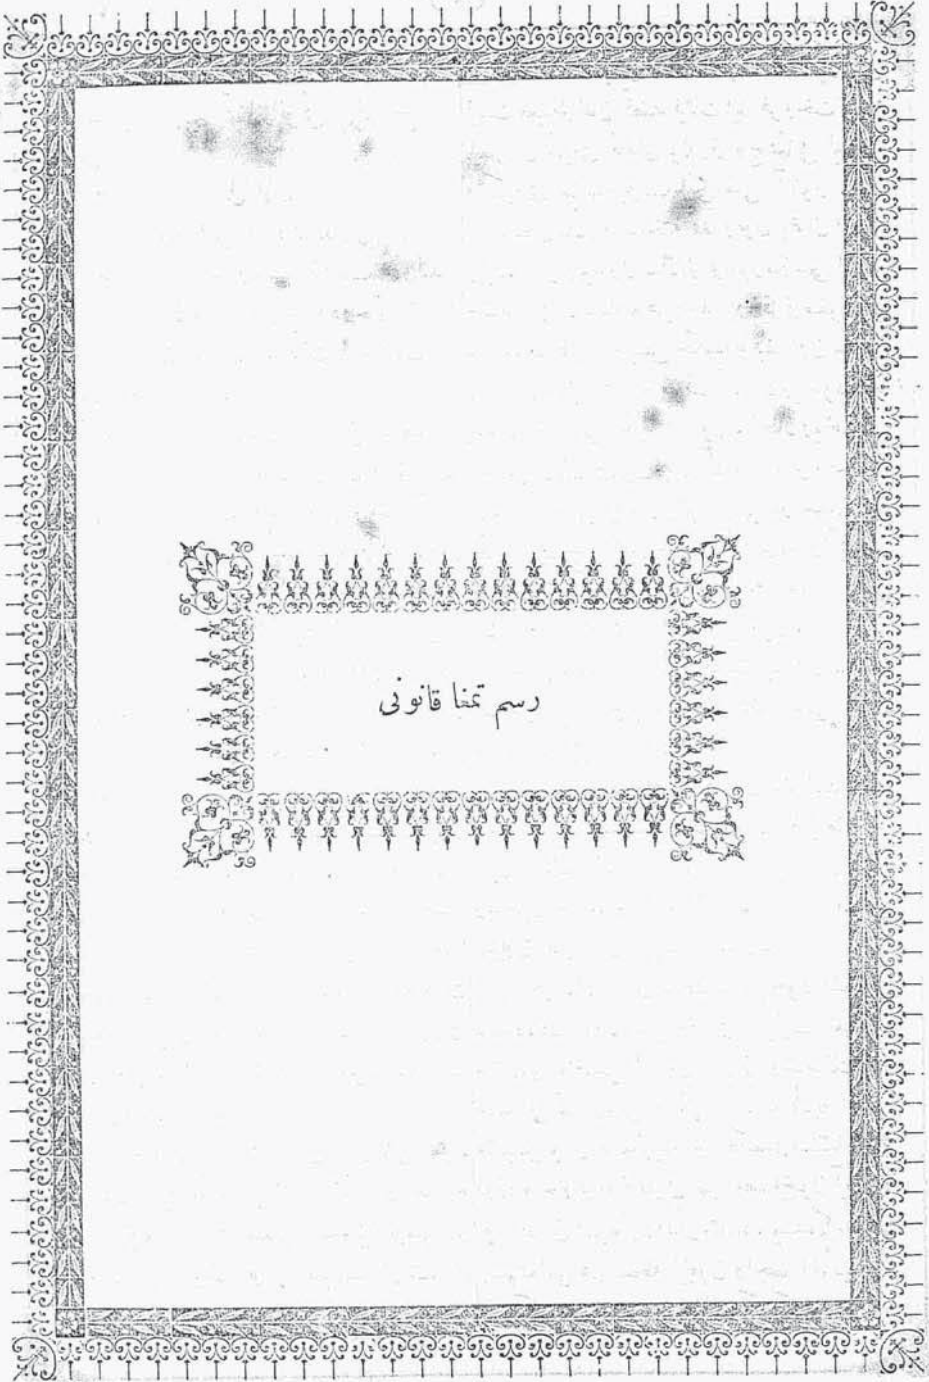 رسم تمغا قانونی